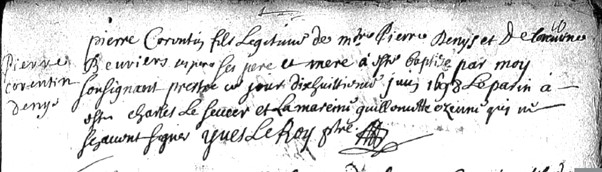 pierre Corentin fils Legitime de mtre Pierre Denys et de
Pierre
corentin
Denys
ses pere et mere à este baptisé par moy
soussignant prestre ce jour dixhuittieme juin 1698 Le parin à
esté charles Le et La mareine guillemette qui ne
scavent signer yves Le Roy ptre